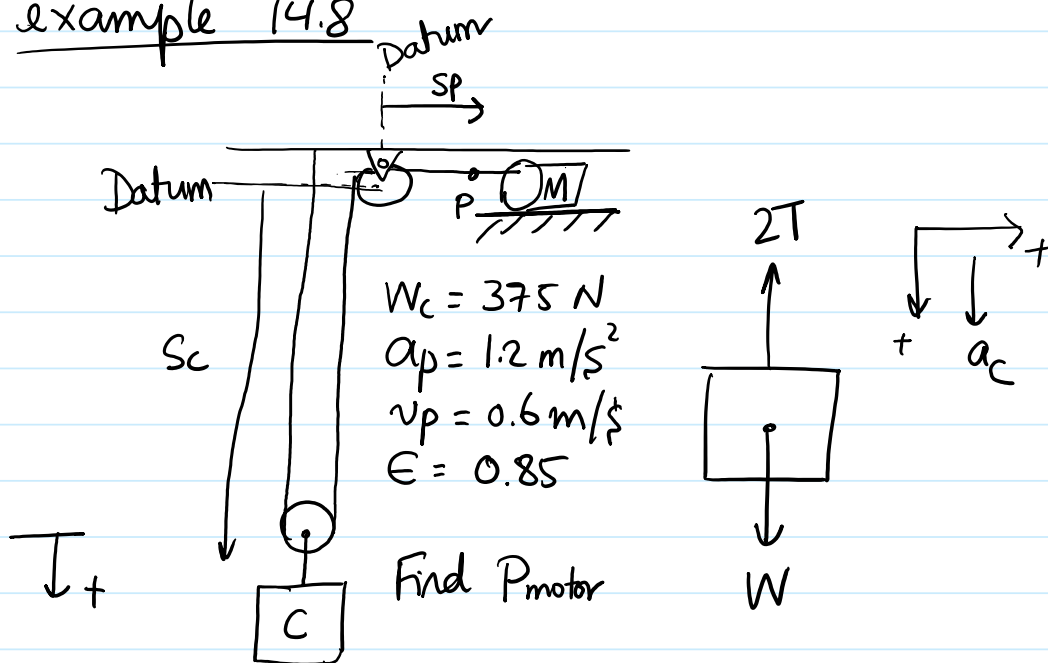 example 14.8
Datum
SP
Datum
P
M
2T
+
Wc = 375 N
ap = 1.2 m/s²
Sc
+
ac
vp = 0.6 m/s
ϵ = 0.85
+
Find Pmotor
W
C